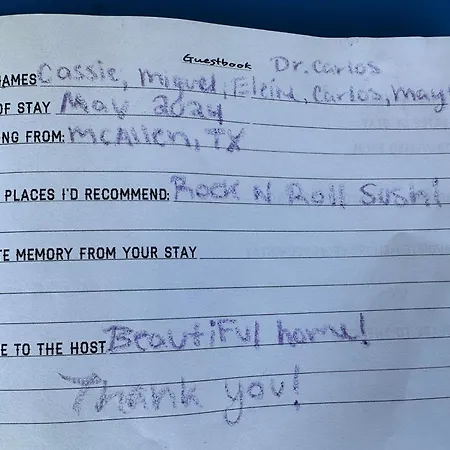 Guestbook Dr. Carlos
AMES Cassie, Miguel, Eleina, Carlos, May
OF STAY May 2024
NG FROM: McAllen, TX
PLACES I'D RECOMMEND: Rock N Roll Sushi
TE MEMORY FROM YOUR STAY
E TO THE HOST Beautiful home!
Thank you!